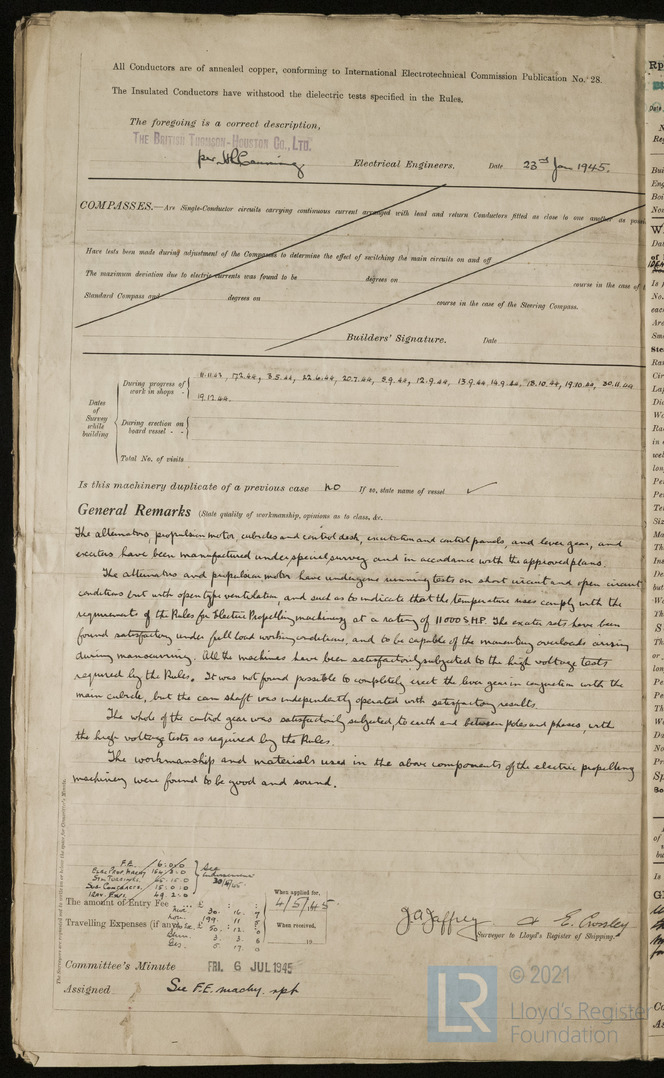 All Conductors are of annealed copper, conforming to International Electrotechnical Commission Publication No. 28.
The Insulated Conductors have withstood the dielectric tests specified in the Rules.
The foregoing is a correct description,
THE BRITISH THOMSON-HOUSTON CO., LTD.
per Electrical Engineers. Date 23rd Jan 1945.
COMPASSES.—Are Single-Conductor circuits carrying continuous current arranged with lead and return Conductors fitted as close to one another as
Have tests been made during adjustment of the Compasses to determine the effect of switching the main circuits on and off
The maximum deviation due to electric currents was found to be degrees on course in the case of
Standard Compass and degrees on course in the case of the Steering Compass.
Builders' Signature. Date
Dates of Survey while building
During progress of work in shops - 11.11.43, 17.2.44, 3.5.44, 22.6.44, 20.7.44, 5.9.44, 12.9.44, 13.9.44, 14.9.44, 18.10.44, 19.10.44, 30.11.44
19.12.44.
During erection on board vessel - -
Total No. of visits
Is this machinery duplicate of a previous case NO If so, state name of vessel ✓
General Remarks (State quality of workmanship, opinions as to class, &c.
The alternators, propulsion motor, cubicles and control desk, excitation and control panels, and lever gear, and
exciters have been manufactured under special survey and in accordance with the approved plans.
The alternators and propulsion motor have undergone running tests on short circuit and open circuit
conditions but with open type ventilation, and such as to indicate that the temperature rises comply with the
requirements of the Rules for Electric Propelling machinery at a rating of 11000 S.H.P. The exciter sets have been
found satisfactory under full load working conditions, and to be capable of the momentary overloads arising
during manoeuvring. All the machines have been satisfactorily subjected to the high voltage tests
required by the Rules. It was not found possible to completely erect the lever gear in conjunction with the
main cubicle, but the cam shaft was independently operated with satisfactory results.
The whole of the control gear was satisfactorily subjected, to earth and between poles and phases, with
the high voltage tests as required by the Rules.
The workmanship and materials used in the above components of the electric propelling
machinery were found to be good and sound.
F.E. 16:0:0
The amount of Entry Fee ... £
Travelling Expenses (if any) £
When applied for,
4/5/45
When received,
19
J A Jaffrey & E. Crosley
Surveyor to Lloyd's Register of Shipping.
Committee's Minute FRI. 6 JUL 1945
Assigned See F.E. machy. rpt
© 2021
LR
Lloyd's Register
Foundation